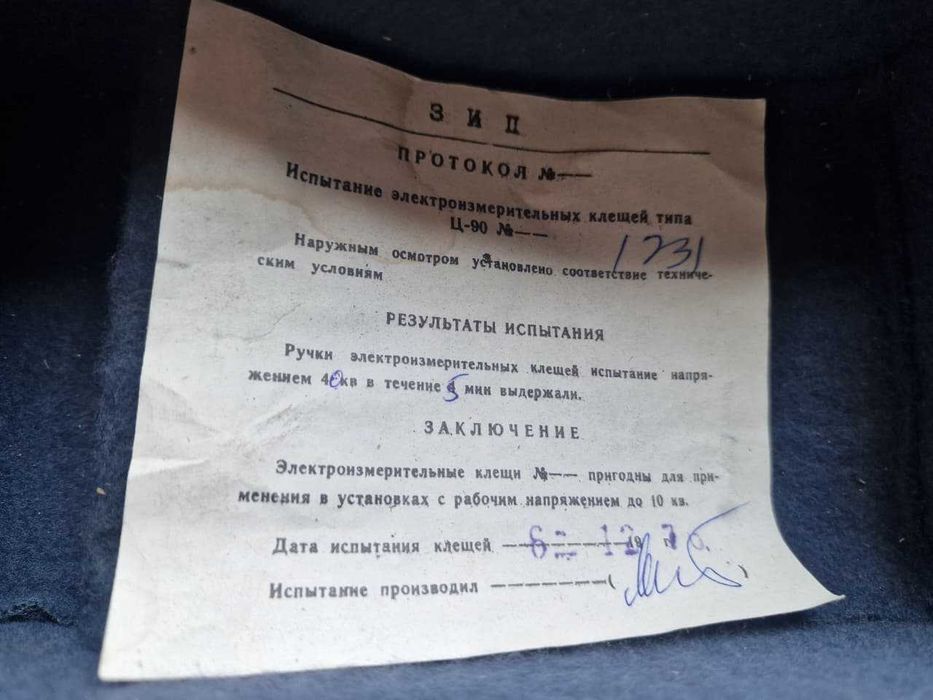 ЗИП
ПРОТОКОЛ №——
Испытание электроизмерительных клещей типа
Ц-90 №—— 1231
Наружным осмотром установлено соответствие техниче-
ским условиям
РЕЗУЛЬТАТЫ ИСПЫТАНИЯ
Ручки электроизмерительных клещей испытание напря-
жением 40кв в течение 5 мин выдержали.
ЗАКЛЮЧЕНИЕ
Электроизмерительные клещи №—— пригодны для при-
менения в установках с рабочим напряжением до 10 кв.
Дата испытания клещей 6 12 19
Испытание производил ———————( )